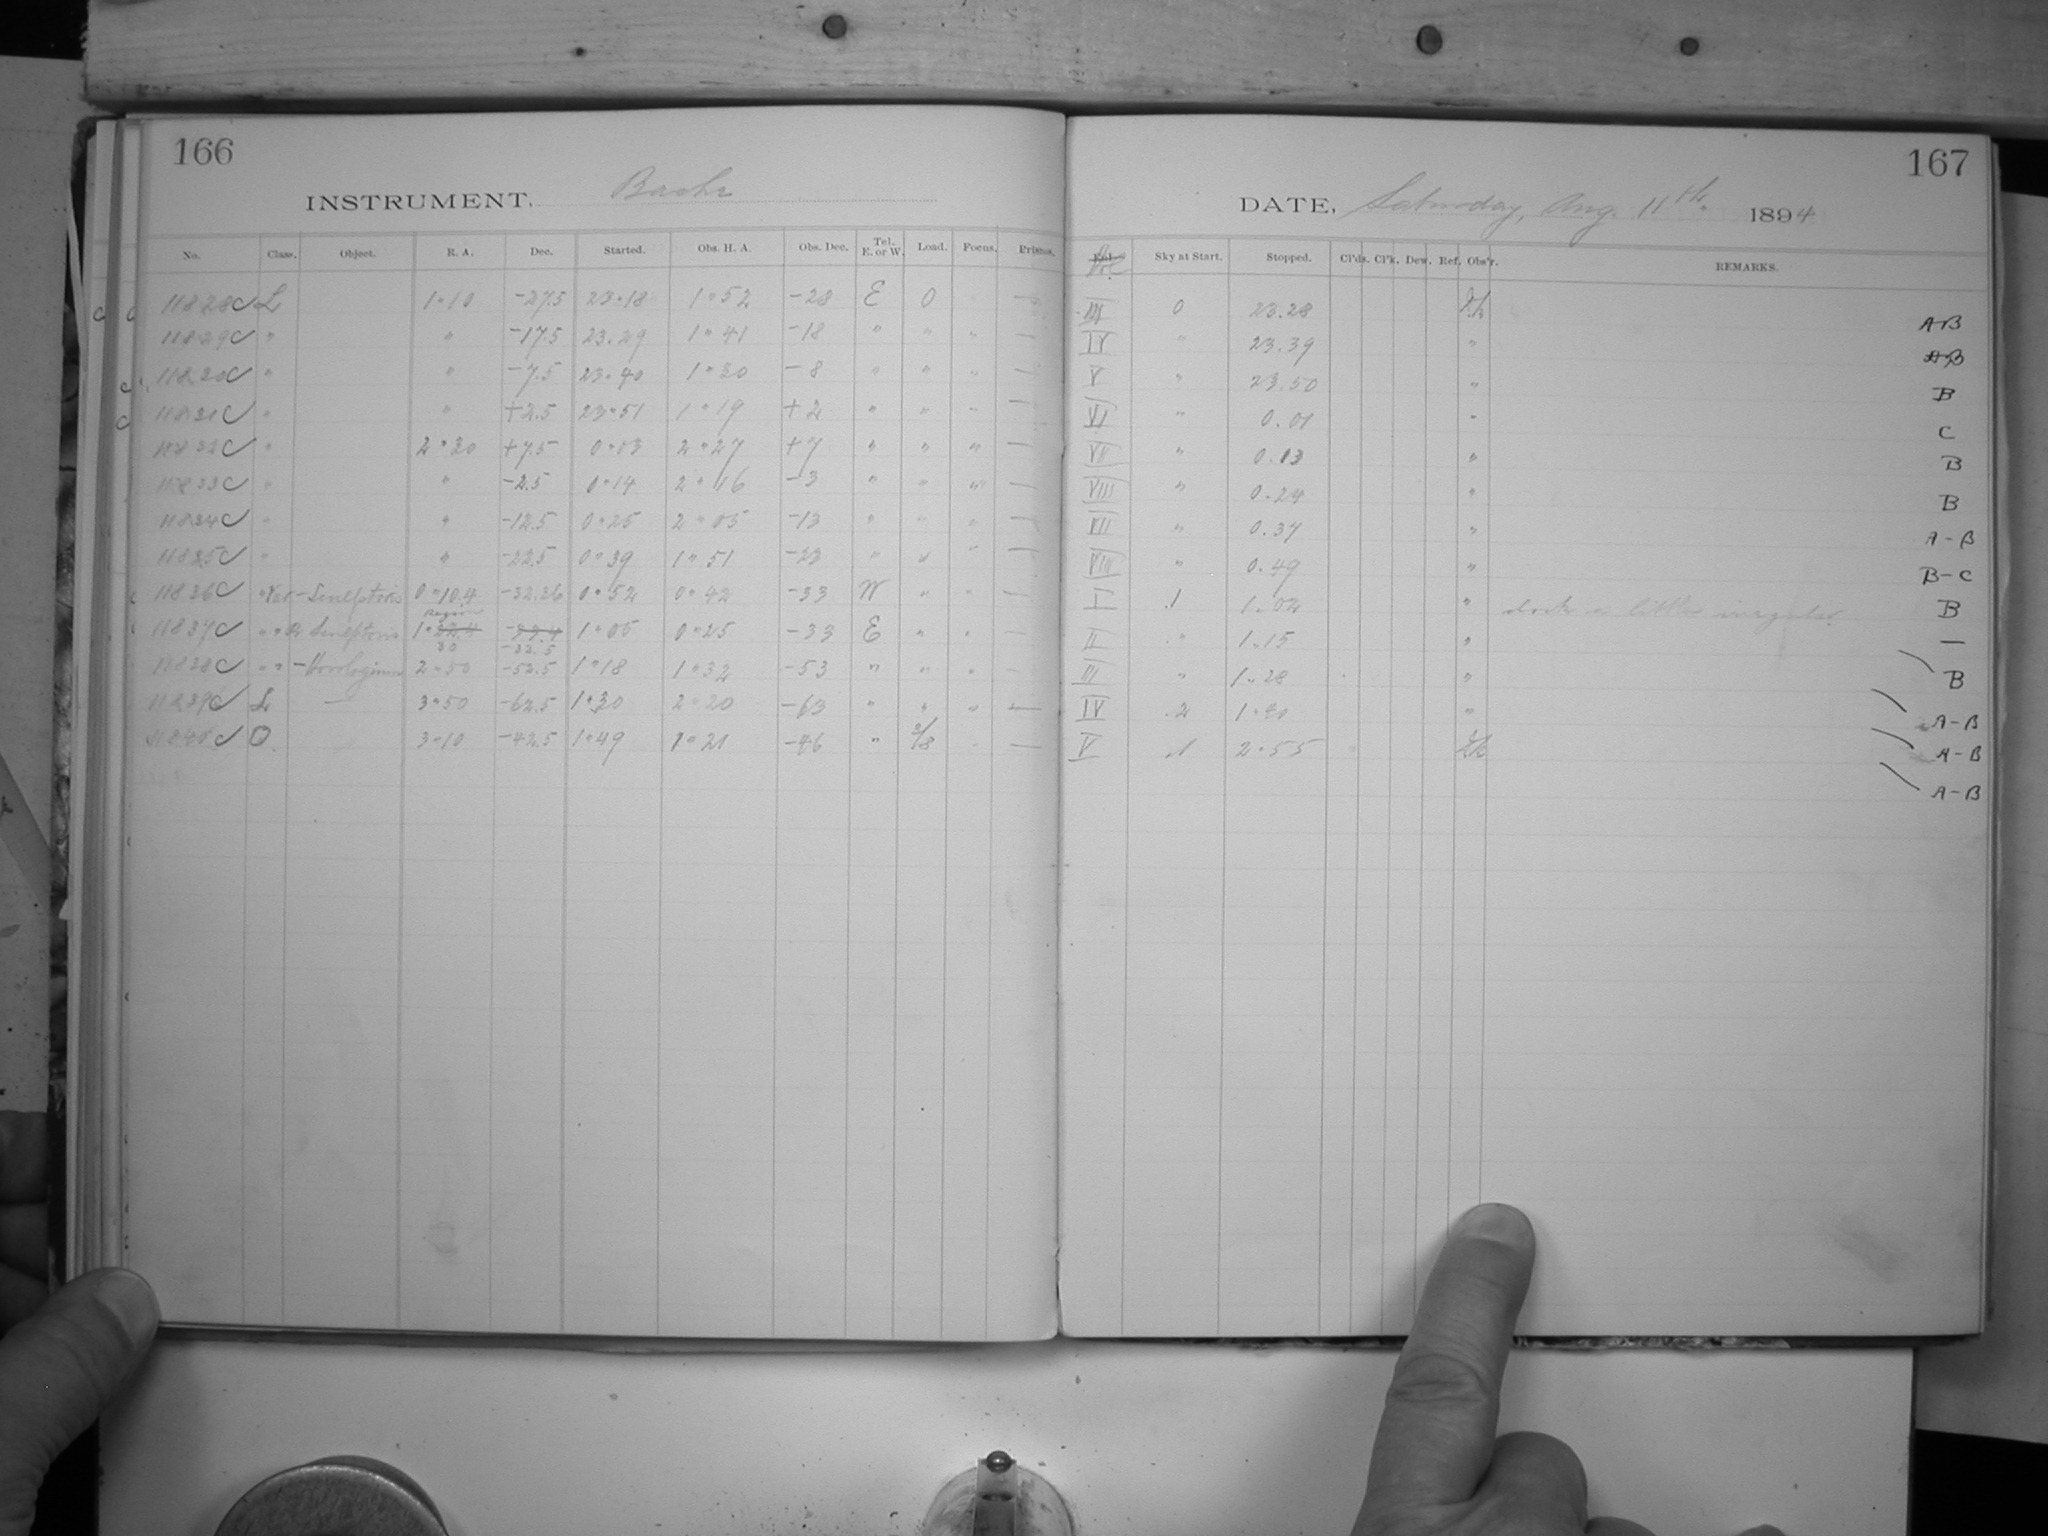 166
INSTRUMENT, Bache
No. Class. Object. R. A. Dec. Started. Obs. H. A. Obs. Dec. Tel. E. or W. Load. Focus. Prisms.
11828 C L 1 10 -27.5 23 18 1 52 -28 E 0 —
11829 C " " -17.5 23.29 1 41 -18 " " " —
11830 C " " -7.5 23 40 1 30 -8 " " " —
11831 C " " +2.5 23 51 1 19 +2 " " " —
11832 C " 2 30 +7.5 0 03 2 27 +7 " " " —
11833 C " " -2.5 0 14 2 16 -3 " " " —
11834 C " " -12.5 0 25 2 05 -13 " " " —
11835 C " " -22.5 0 39 1 51 -23 " " " —
11836 C " Var - Sculptoris 0 10.4 -32.36 0 52 0 42 -33 W " " —
Region
11837 C " " R Sculptoris 1 22.4 -33.4 1 05 0 25 -33 E " " —
30 -32.5
11838 C " " - Horologium 2 50 -52.5 1 18 1 32 -53 " " " —
11839 C L — 3 50 -62.5 1 30 2 20 -63 " " " —
11840 C O 3 10 -42.5 1 49 1 21 -46 " 2/8 —
167
DATE, Saturday, Aug. 11th. 1894
Sky at Start. Stopped. Cl'ds. Cl'k. Dew. Ref. Obs'r. REMARKS.
III 0 23.28 A-B
IV " 23.39 " A-B
V " 23.50 " B
VI " 0.01 " C
VII " 0.13 " B
VIII " 0.24 " B
VII " 0.37 " A-B
VIII " 0.49 " B-C
I 1 1.02 " clock a little irregular. B
II " 1.15 " —
III " 1.28 " B
IV 2 1.40 " A-B
V 1 2.55 A-B
A-B